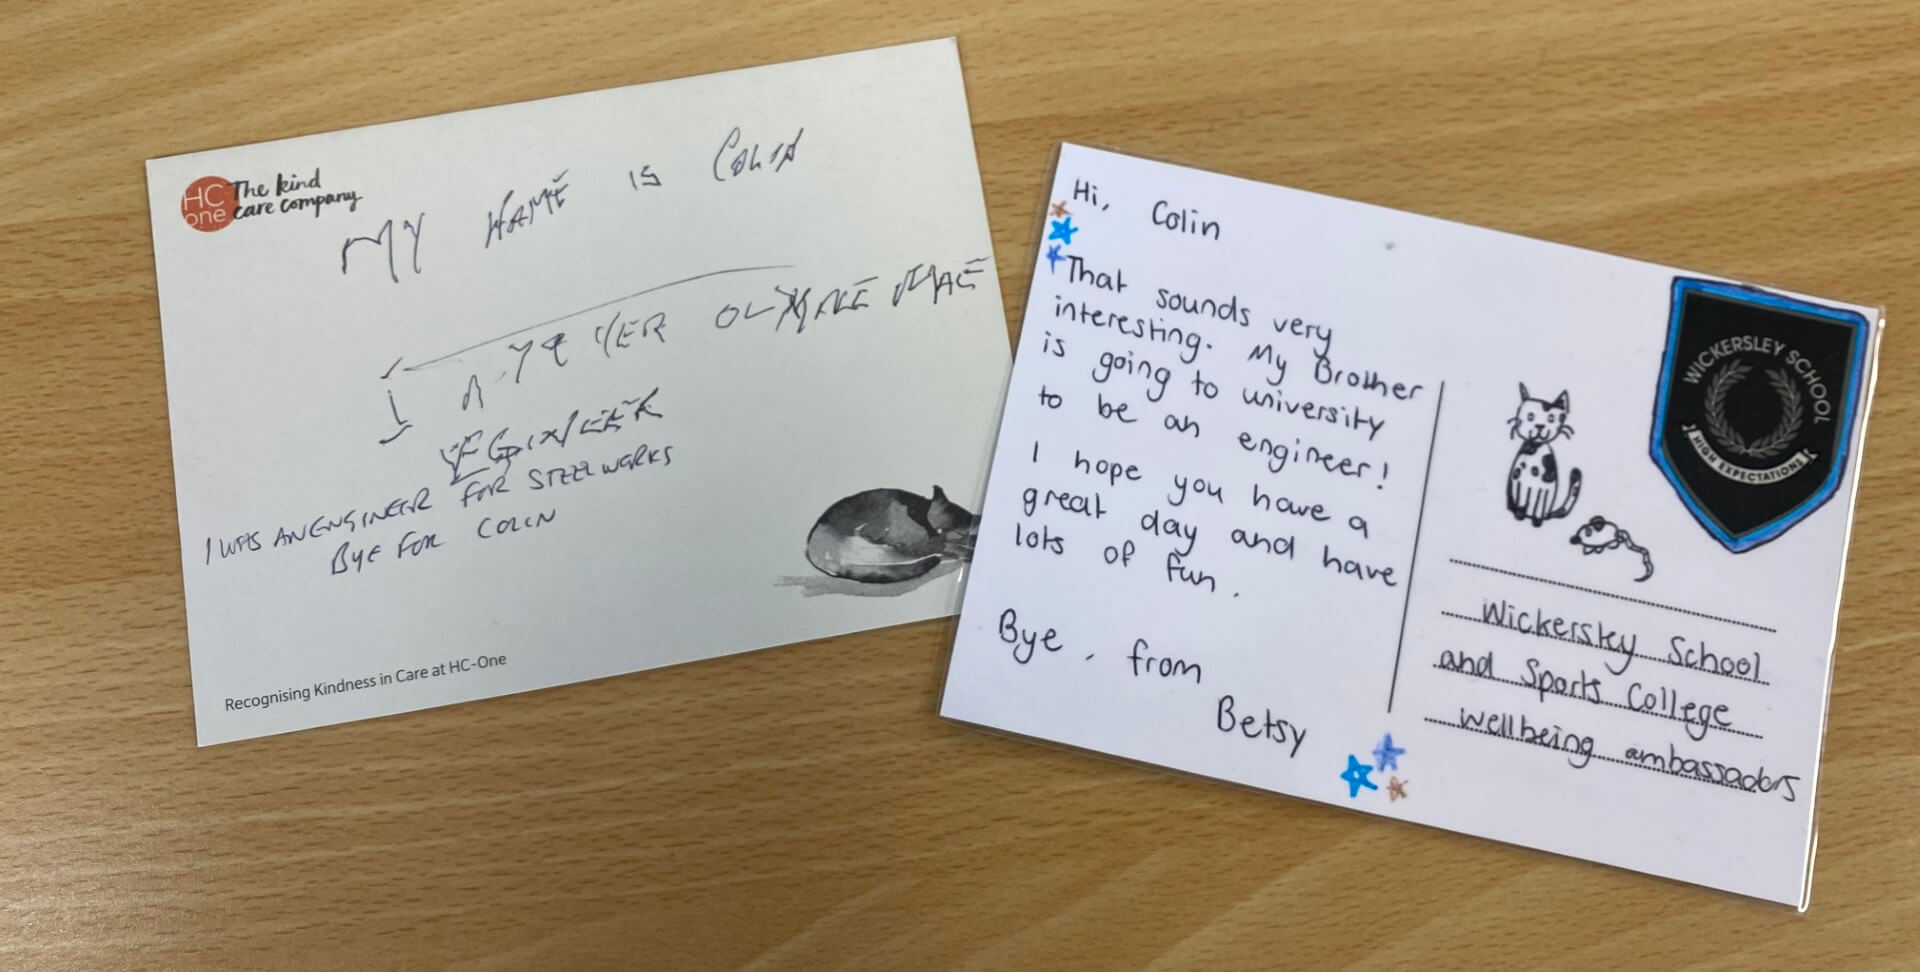 HC
one
The kind
care company
MY NAME IS COLIN
I A 79 YER OL
I WAS AN ENGINEER FOR STEEL WORKS
BYE FOR COLIN
Recognising Kindness in Care at HC-One
Hi, Colin
That sounds very
interesting. My Brother
is going to university
to be an engineer!
I hope you have a
great day and have
lots of fun.
Bye, from
Betsy
WICKERSLEY SCHOOL
HIGH EXPECTATIONS
Wickersley School
and Sports College
wellbeing ambassadors